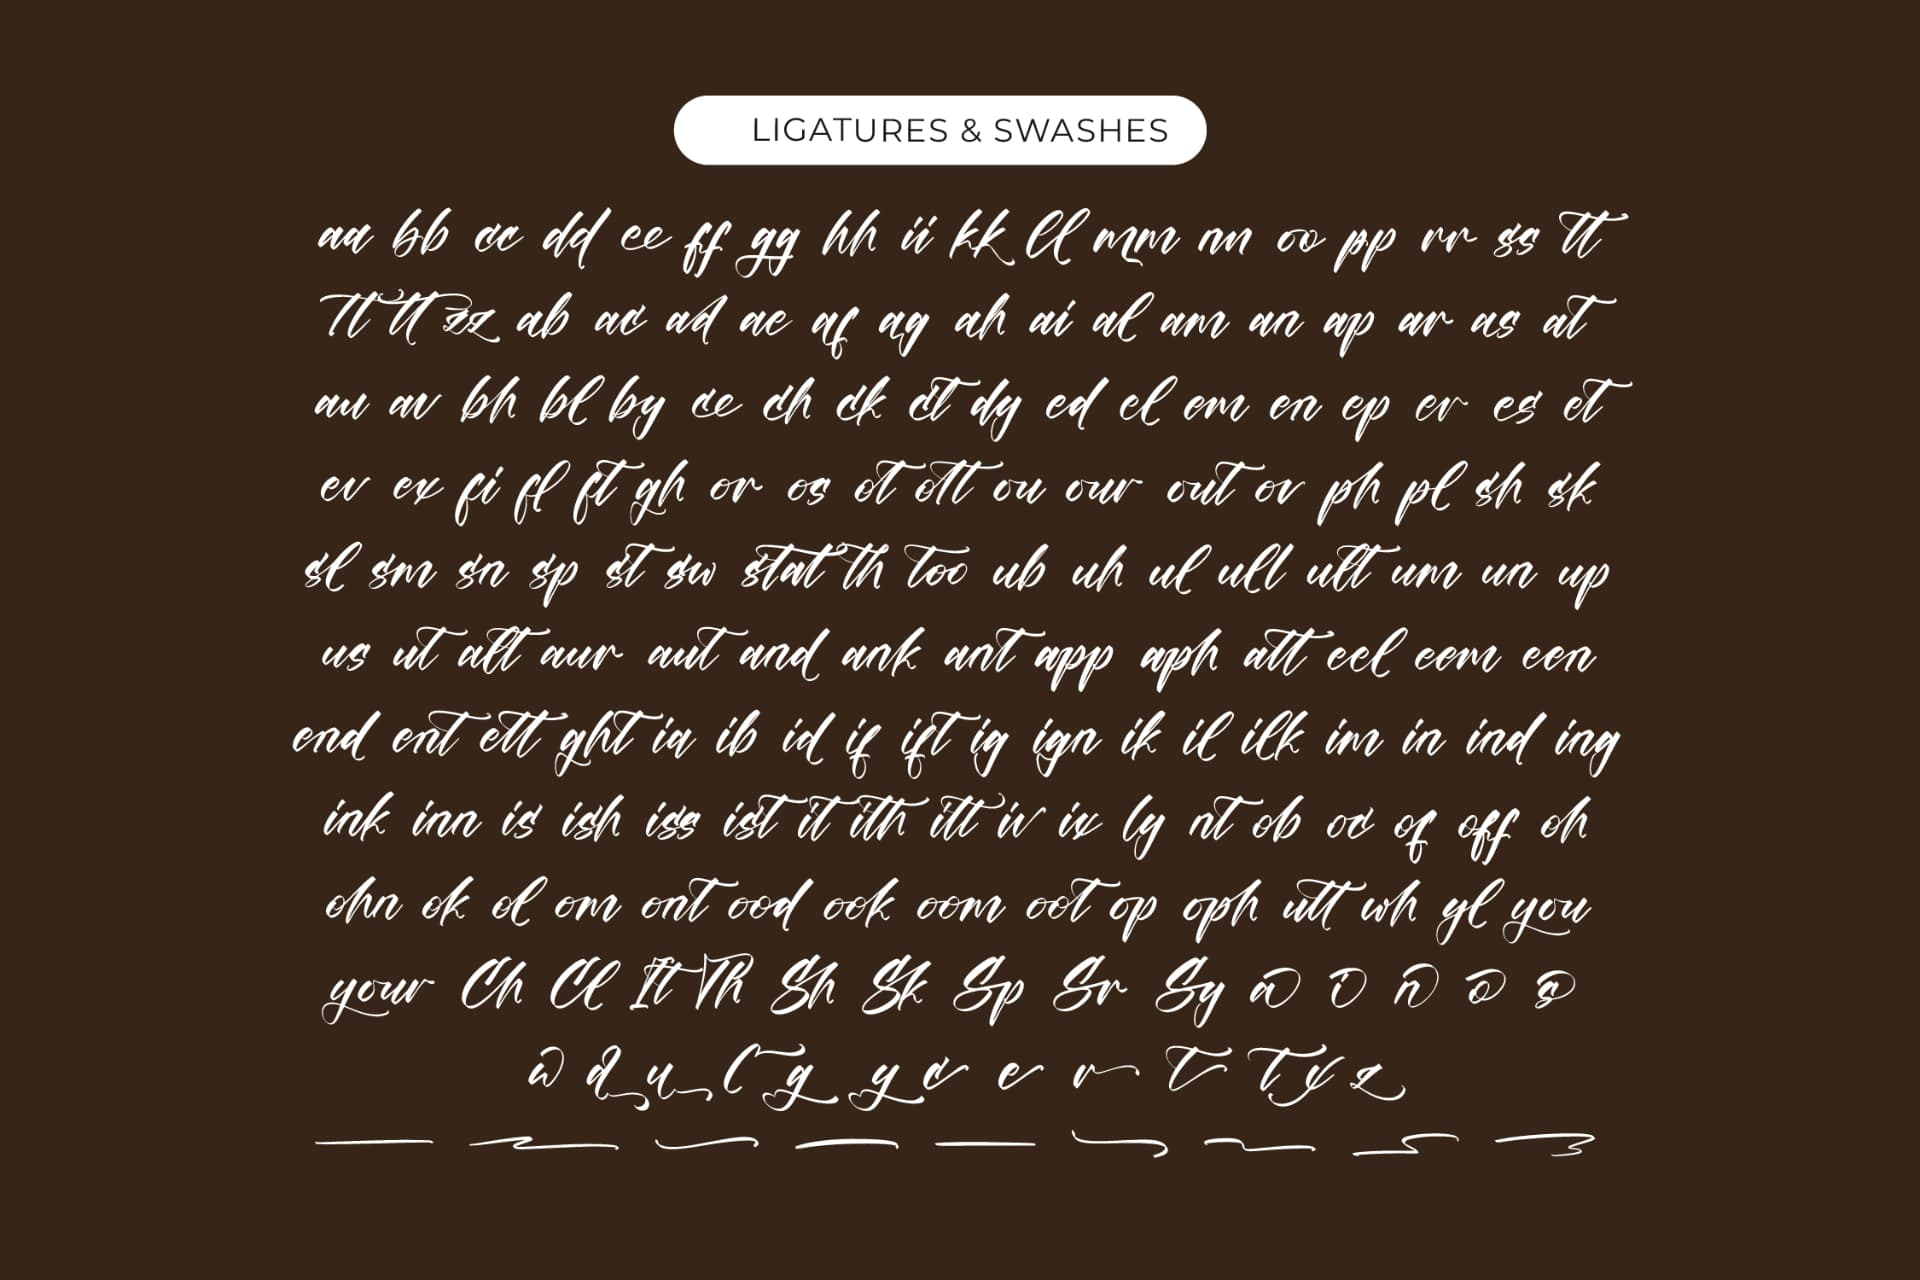 LIGATURES & SWASHES
aa bb cc dd ee ff gg hh ii kk ll mm nn oo pp rr ss tt
tt tt zz ab ac ad ae af ag ah ai al am an ap ar as at
au av bh bl by ce ch ck ct dy ed el em en ep er es et
ev ex fi fl ft gh or os ot ott ou our out ov ph pl sh sk
sl sm sn sp st sw stat th too ub uh ul ull ult um un up
us ut alt aur aut and ank ant app aph att eel eem een
end ent ett ght ia ib id if ift ig ign ik il ilk im in ind ing
ink inn is ish iss ist it ith itt iv ix ly nt ob oc of off oh
ohn ok ol om ont ood ook oom oot op oph utt wh yl you
your Ch Cl It Th Sh Sk Sp Sr Sy a v n o s
w d u t g y c e r t t x z